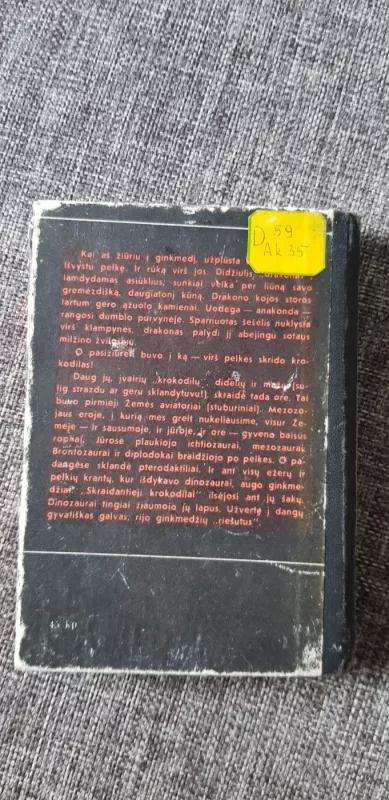 D 59
Ak 35
Kai aš žiūriu į ginkmedį, užplūsta
išvystu pelkę. Ir rūką virš jos. Didžiulis
lamdydamas asiūklius, sunkiai velka per liūną savo
gremėzdišką, daugiatonį kūną. Drakono kojos storos
tartum gero ąžuolo kamienai. Uodega — anakonda —
rangosi dumblo purvynėje. Sparnuotas šešėlis nuklysta
virš klampynės, drakonas palydi jį abejingu sotaus
milžino žvilgsniu.
O pasižiūrėti buvo į ką — virš pelkės skrido kro-
kodilas!
Daug jų, įvairių „krokodilų“, didelių ir mažų (su-
lig strazdu ar geru sklandytuvu!), skraidė tada ore. Tai
buvo pirmieji Žemės aviatoriai (stuburiniai). Mezozo-
jaus eroje, į kurią mes greit nukeliausime, visur Že-
mėje — ir sausumoje, ir jūroje, ir ore — gyveno baisūs
ropliai. Jūrose plaukiojo ichtiozaurai, mezozaurai.
Brontozaurai ir diplodokai braidžiojo po pelkes. O pa-
dangėse sklandė pterodaktiliai. Ir ant visų ežerų ir
pelkių krantų, kur išdykavo dinozaurai, augo ginkme-
džiai! „Skraidantieji krokodilai“ ilsėjosi ant jų šakų.
Dinozaurai tingiai žiaumojo jų lapus. Užvertę į dangų
gyvatiškas galvas, rijo ginkmedžių „riešutus“.
45 kp